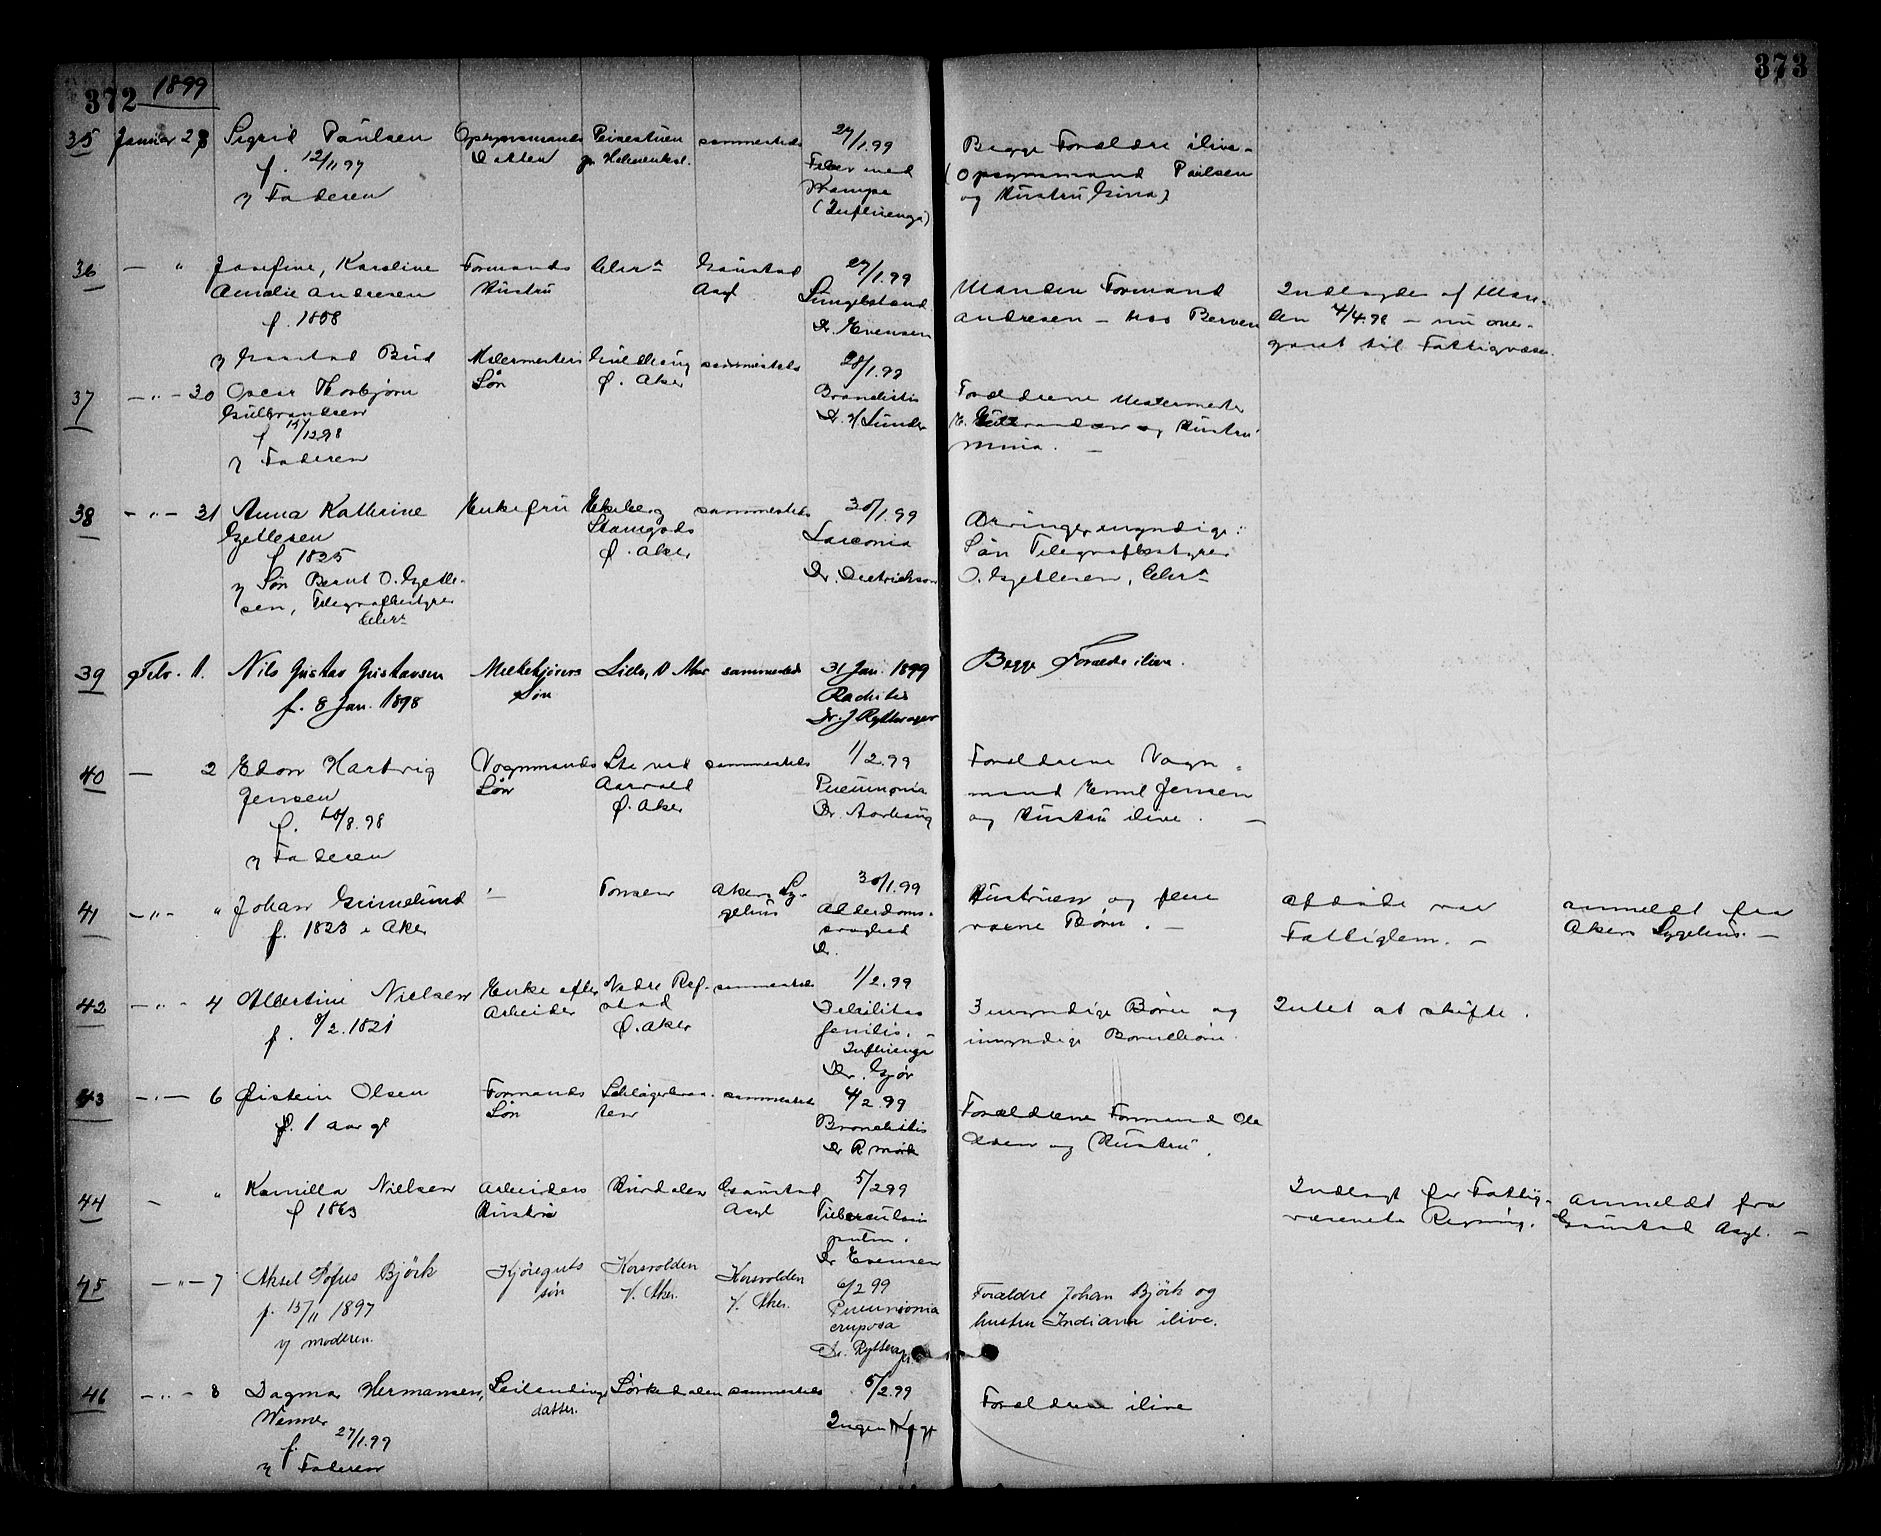 372 1899 373
35 Januar 28 Sigrid Paulsen Opsynsmands Peisestuen sammesteds 27/1.99 Begge Forældre ilive -
f. 12/11 97 Datter pr Holmenkol. Feber med (Opsynsmand Paulsen
v Faderen Krampe og Hustru Gina)
(Influenza)
36 — " Josefine, Karoline Formands Chra Gaustad 27/1.99
Amalie Andresen Hustru Asyl Lungebetænd. Manden Formand Indlagdes af Man-
f. 1858 Dr. Evensen Andresen — hos Berven den 4/4.98 — nu over-
v Gaustad Bud gaaet til Fattigvæsen.
37 — " — 30 Oscar Thorbjørn Malermesters sammesteds 28/1.99
Gulbrandsen Søn Ø. Aker Bronchitis Forældrene Malermester
f 15/12 98 Dr. Sunder E. Gulbrandsen og Hustru
v Faderen Mina. —
38 — " — 31 Anna Kathrine Enkefru Ekeberg sammesteds 30/1.99
Gjetlesen Stamgods Arvinger myndige:
f 1825 Ø. Aker Søn Telegrafbestyrer
v Søn Bernt O. Gjetle- Dr. Dietrichson O. Gjetlesen, Chra
sen, Telegrafbestyrer
Chra
39 Febr. 1. Nils Gustav Gustavsen Melkekjørers Lille, V Aker sammesteds 31 Jan. 1899 Begge Forældre ilive.
f. 8 Jan. 1898 Søn Rachitis
Dr. J Rytterager
40 — 2 Edon Hartvig Vognmands sammesteds 1/2.99 Forældrene Vogn-
Jensen Søn Aarvold Pneumonia mand Emil Jensen
f. 18/8.98 Ø. Aker Dr. Aarhaug og Hustru ilive. —
v Faderen
41 — " — " Johan Grimelund — Tonsen Akers Sy- 30/1.99 Hustruen og flere Afdøde var anmeldt fra
f. 1823 i Aker gehus Alderdoms- voxne Børn. — Fattiglem. — Akers Sygehus. —
svaghed
Dr.
42 — " — 4 Albertine Nielsen Enke efter Nedre Ref- sammesteds 1/2.99
f. 8/2.1821 Arbeider stad Debilitas 3 myndige Børn og Intet at skifte.
Ø. Aker senilis. — umyndige Børnebørn.
Influenza
Dr. Gjør
43 — " — 6 Øistein Olsen Formands sammesteds 4/2.99
f. 1 aar gl Søn Bronchitis Forældrene Formand Ole
Dr R Mørk Olsen og Hustru.
44 — " Kamilla Nielsen Arbeiders Hurdalen Gaustad 5/2 99 Indlagt for Fattig- Anmeldt fra
f 1863 Hustru Asyl Tuberculosis væsenets Regning. Gaustad Asyl. —
pulm.
Dr Evensen
45 — " — 7 Aksel Sofus Björk Kjøreguts Korsvolden Korsvolden 6/2 99 Forældre Johan Björk og
f. 15/11 1897 søn V. Aker. V. Aker. Pneumonia hustru Indiana ilive.
v moderen. cruposa
Dr. Rytterager.
46 — " — 8 Dagmar Hermansen, Leilendings Sørkedalen sammesteds 5/2.99 Forældrene ilive
Wenner datter. Ingen Læge
f. 27/1.99
v Faderen